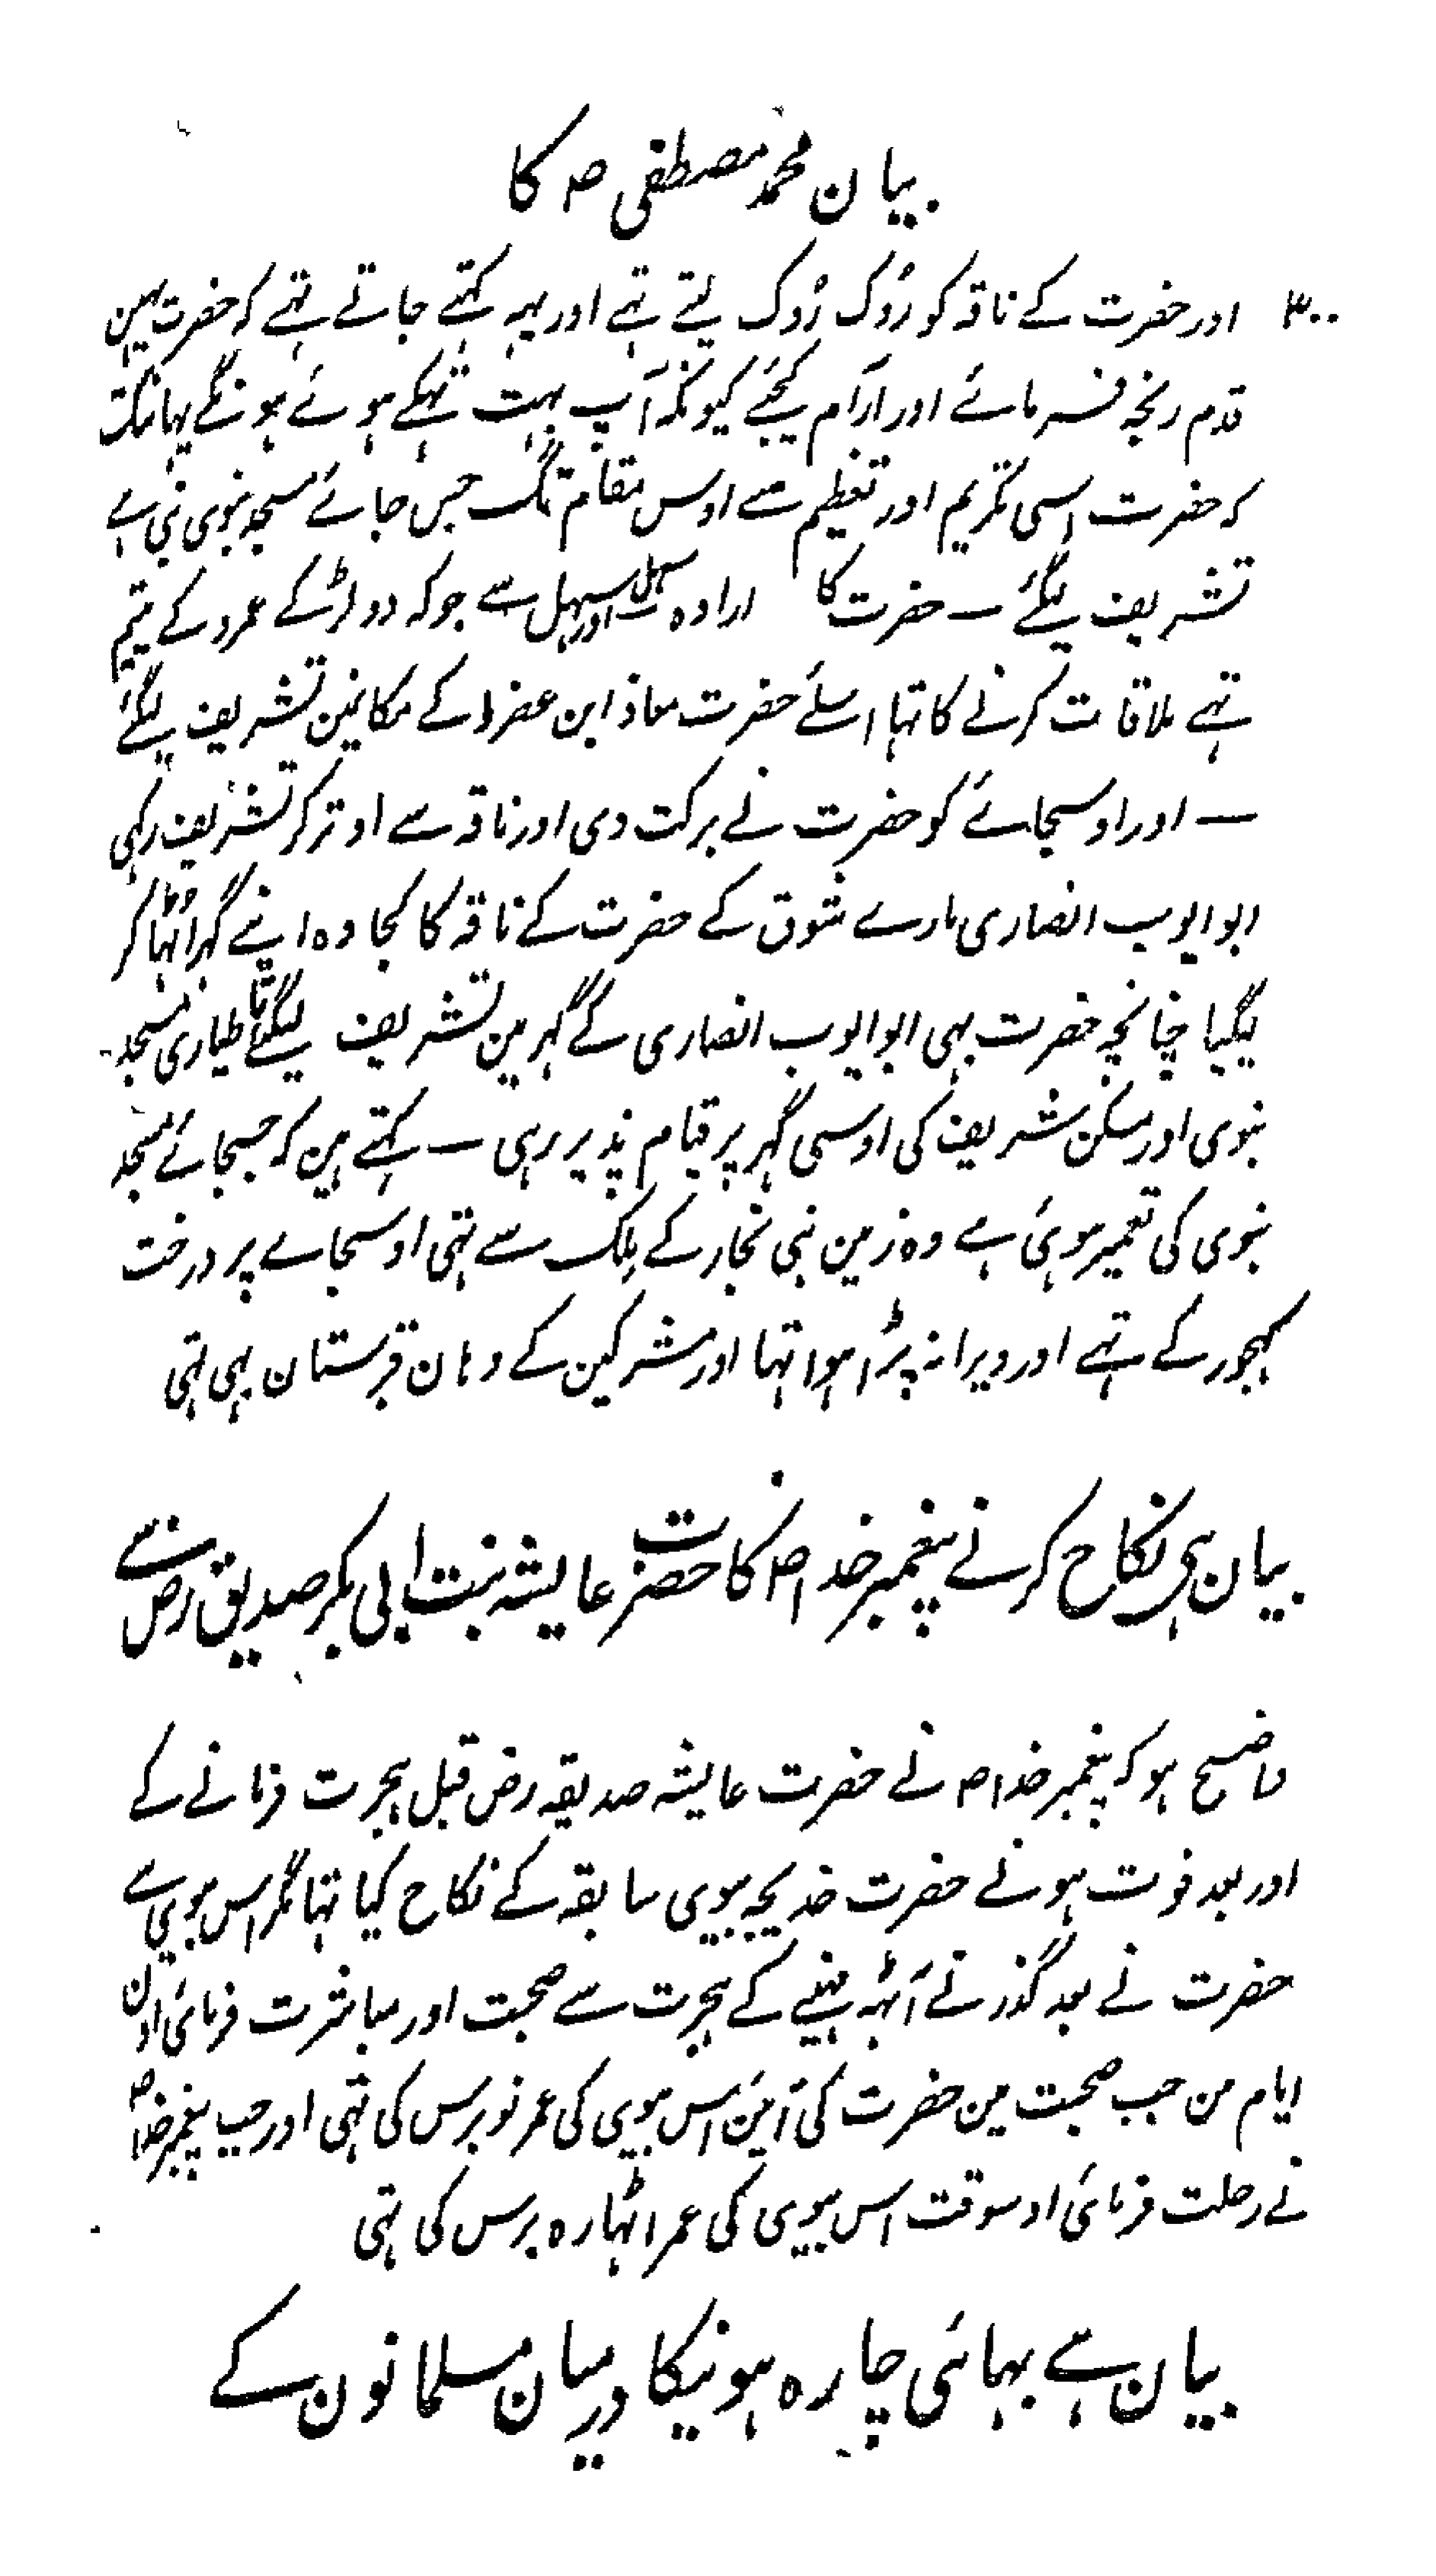 بیان محمد مصطفی ص کا
۳۰۰ اور حضرت کے ناقہ کو رُوک رُوک لیتے تہے اور یہہ کہتے جاتے تہے کہ حضرت یہین
قدم رنجہ فرمائے اور آرام کیجئے کیونکہ آپ بہت تہکے ہوئے ہونگے یہانتک
کہ حضرت اسی تکریم اور تعظیم سے اوس مقام تک جس جائے مسجد نبوی بنی ہے
تشریف لیگئے ۔ حضرت کا ارادہ سہل اور سہیل سے جو کہ دو لڑکے عمرو کے یتیم
تہے ملاقات کرنے کا تہا اسلئے حضرت معاذ ابن عفرا کے مکانمین تشریف لیگئے
۔ اور اوسجائے کو حضرت نے برکت دی اور ناقہ سے اوتر کر تشریف رکہی
ابو ایوب انصاری مارے شوق کے حضرت کے ناقہ کا کجاوہ اپنے گہر اوٹہا کر
لیگیا چنانچہ حضرت بہی ابو ایوب انصاری کے گہر مین تشریف لیگئے تا طیاری مسجد
نبوی اور مسکن شریف کی اوسی گہر پر قیام پذیر رہی ۔ کہتے ہین کہ جسجائے مسجد
نبوی کی تعمیر ہوئی ہے وہ زمین بنی نجار کے مِلک سے تہی اوسجاے پر درخت
کہجور کے تہے اور ویرانہ پڑا ہوا تہا اور مشرکین کے وہان قبرستان بہی تہی
بیان ہی نکاح کرنے پیغمبر خدا ص کا حضرت عایشہ بنت ابی بکر صدیق رض سے
واضح ہو کہ پیغمبر خدا ص نے حضرت عایشہ صدیقہ رض قبل ہجرت فرمانے کے
اور بعد فوت ہونے حضرت خدیجہ بیوی سابقہ کے نکاح کیا تہا مگر اس بیوی سے
حضرت نے بعد گذرنے آٹہہ مہینے کے ہجرت سے صحبت اور مباشرت فرمائی اون
ایام من جب صحبت مین حضرت کی آئین اس بیوی کی عمر نو برس کی تہی اور جب پیغمبر خدا ص
نے رحلت فرمائی اوسوقت اس بیوی کی عمر اٹہارہ برس کی تہی
بیان ہے بہائی چارہ ہونیکا درمیان مسلمانون کے